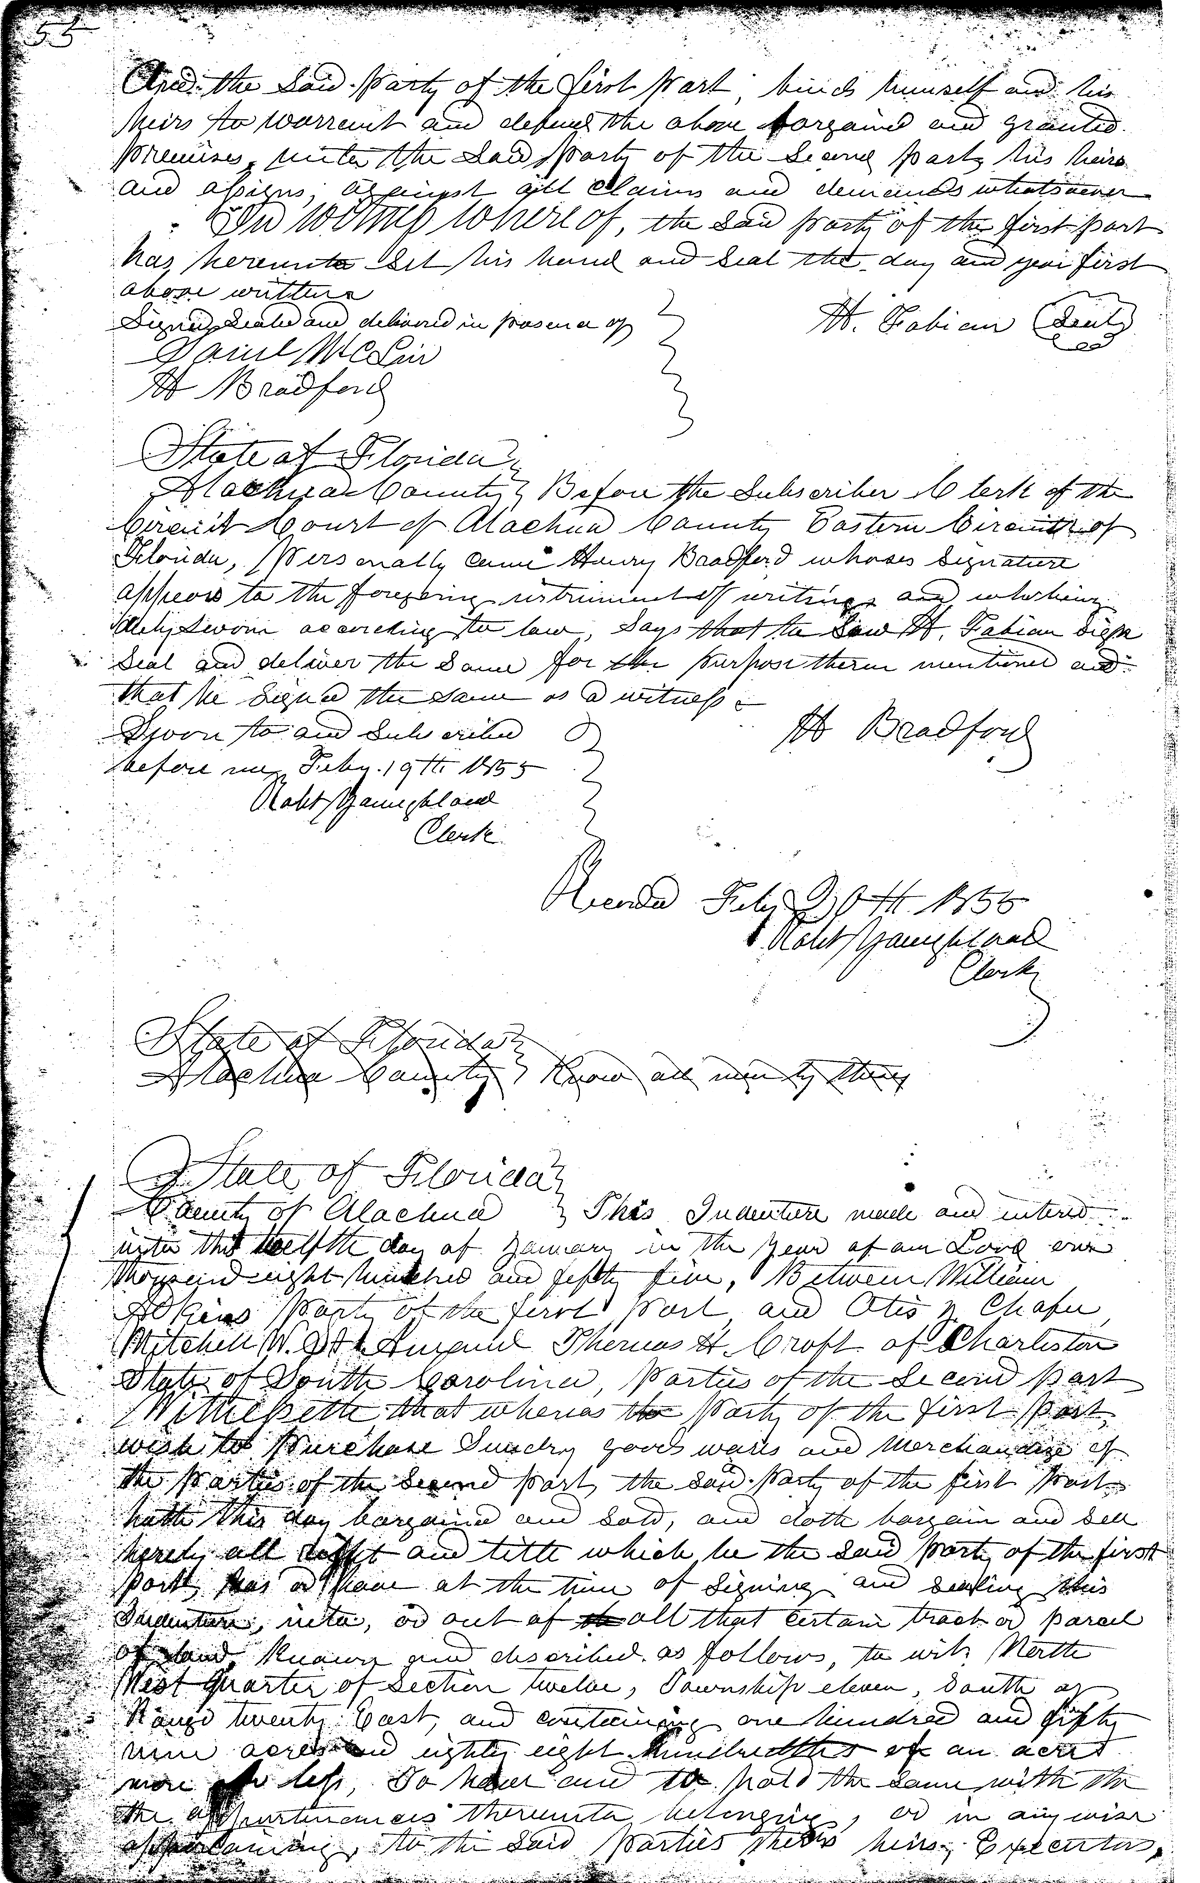 55
And the Said party of the first part, binds himself and his
heirs to warrent and defend the above bargained and granted
premises, unto the Said party of the Second party his heirs
and assigns, against all claims and demands whatsoever
In Witness Whereof, the said party of the first part
has hereunto Set his hand and Seal the day and year first
above written
Signed Sealed and delivered in presence of
H. Fabian (Seal)
H Bradford
State of Florida
Alachua County } Before the Subscriber Clerk of the
Circuit Court of Alachua County Eastern Circuit of
Florida, personally came Henry Bradford whoses Signature
appears to the foregoing instrument of writing, and who being
duly Sworn according to law, Says that he Saw H. Fabian Sign
Seal and deliver the Same for the purpose therein mentioned and
that he Signed the same as a witness
H Bradford
Sworn to and Subscribed
before me, Feby. 19th 1855
Robt
Clerk
Recorded Feby 20th 1855
Robt
Clerk
State of Florida
Alachua County } Know all men by these
State of Florida
County of Alachua } This Indenture made and intered
into this twelfth day of January in the Year of our Lord one
thousand eight hundred and fifty five, Between William
Adkins party of the first part, and Otis Chafee,
Mitchell W. Thomas H. Croft of Charleston
State of South Carolina, parties of the Second part
Witnesseth that whereas the party of the first part,
wish to purchase Sundry goods wares and Merchandize of
the parties of the Second part, the said party of the first part
hath this day bargained and Sold, and doth bargain and Sell
hereby all right and title which he the Said party of the first
part, has or have at the time of Signing and sealing this
Indenture, into, or out of all that certain tract or parcel
of land, Known and described as follows, to wit. North
West quarter of Section twelve, Township eleven, South of
Range twenty East, and containing one hundred and fifty
nine acres and eighty eight hundredths of an acre
more or less, To have and to hold the same with the
the appurtinances thereunto belonging, or in anywise
appertaining, to the Said parties theirs heirs, Executors,